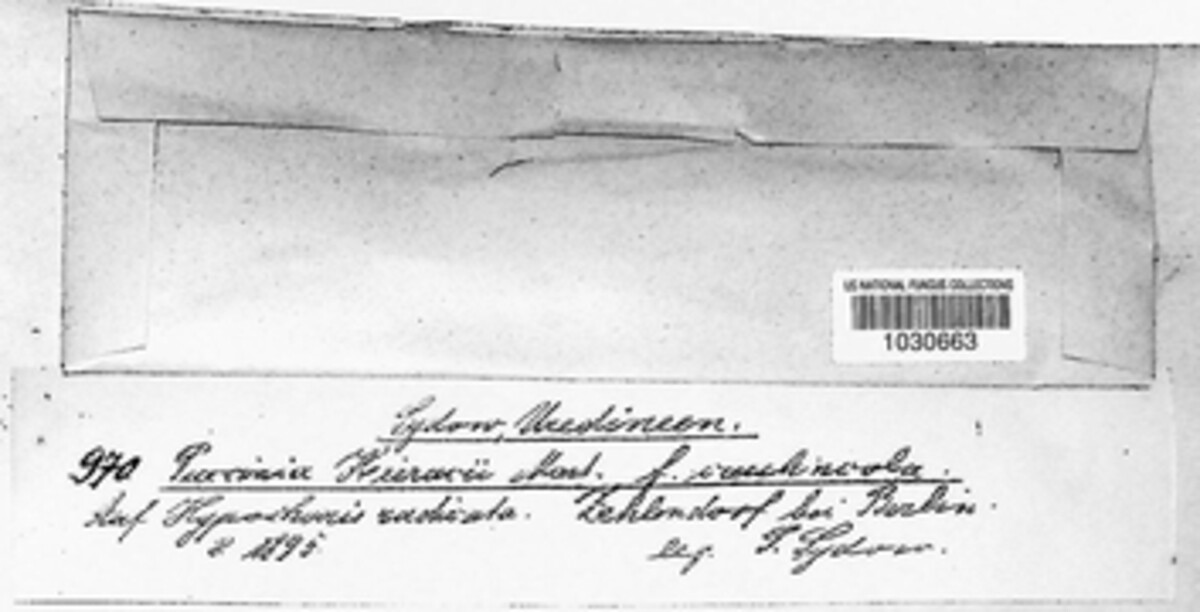 US NATIONAL FUNGUS COLLECTIONS
1030663
Sydow, Uredineen.
970 Puccinia Hieracii Mart. f.
Auf Hypochoeris radicata. Zehlendorf bei Berlin.
1895 leg. P. Sydow.